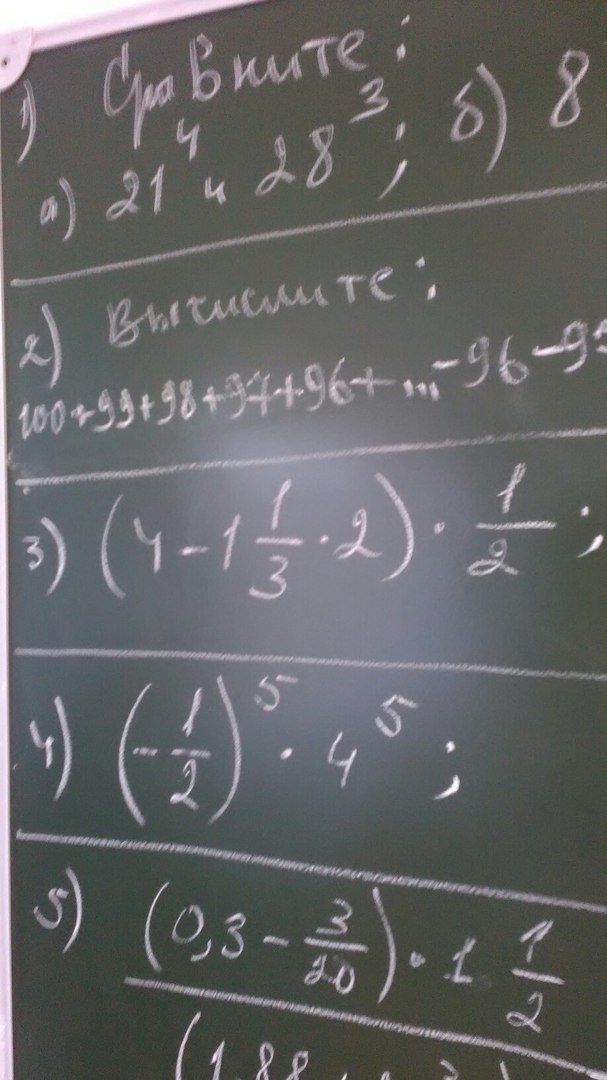 1) Сравните:
а) 21⁴ и 28³; б) 8
2) Вычислите:
100+99+98+97+96+...-96-9
3) (4 - 1 1/3 · 2) · 1/2;
4) (-1/2)⁵ · 4⁵;
5) (0,3 - 3/20) · 1 1/2
(1,88